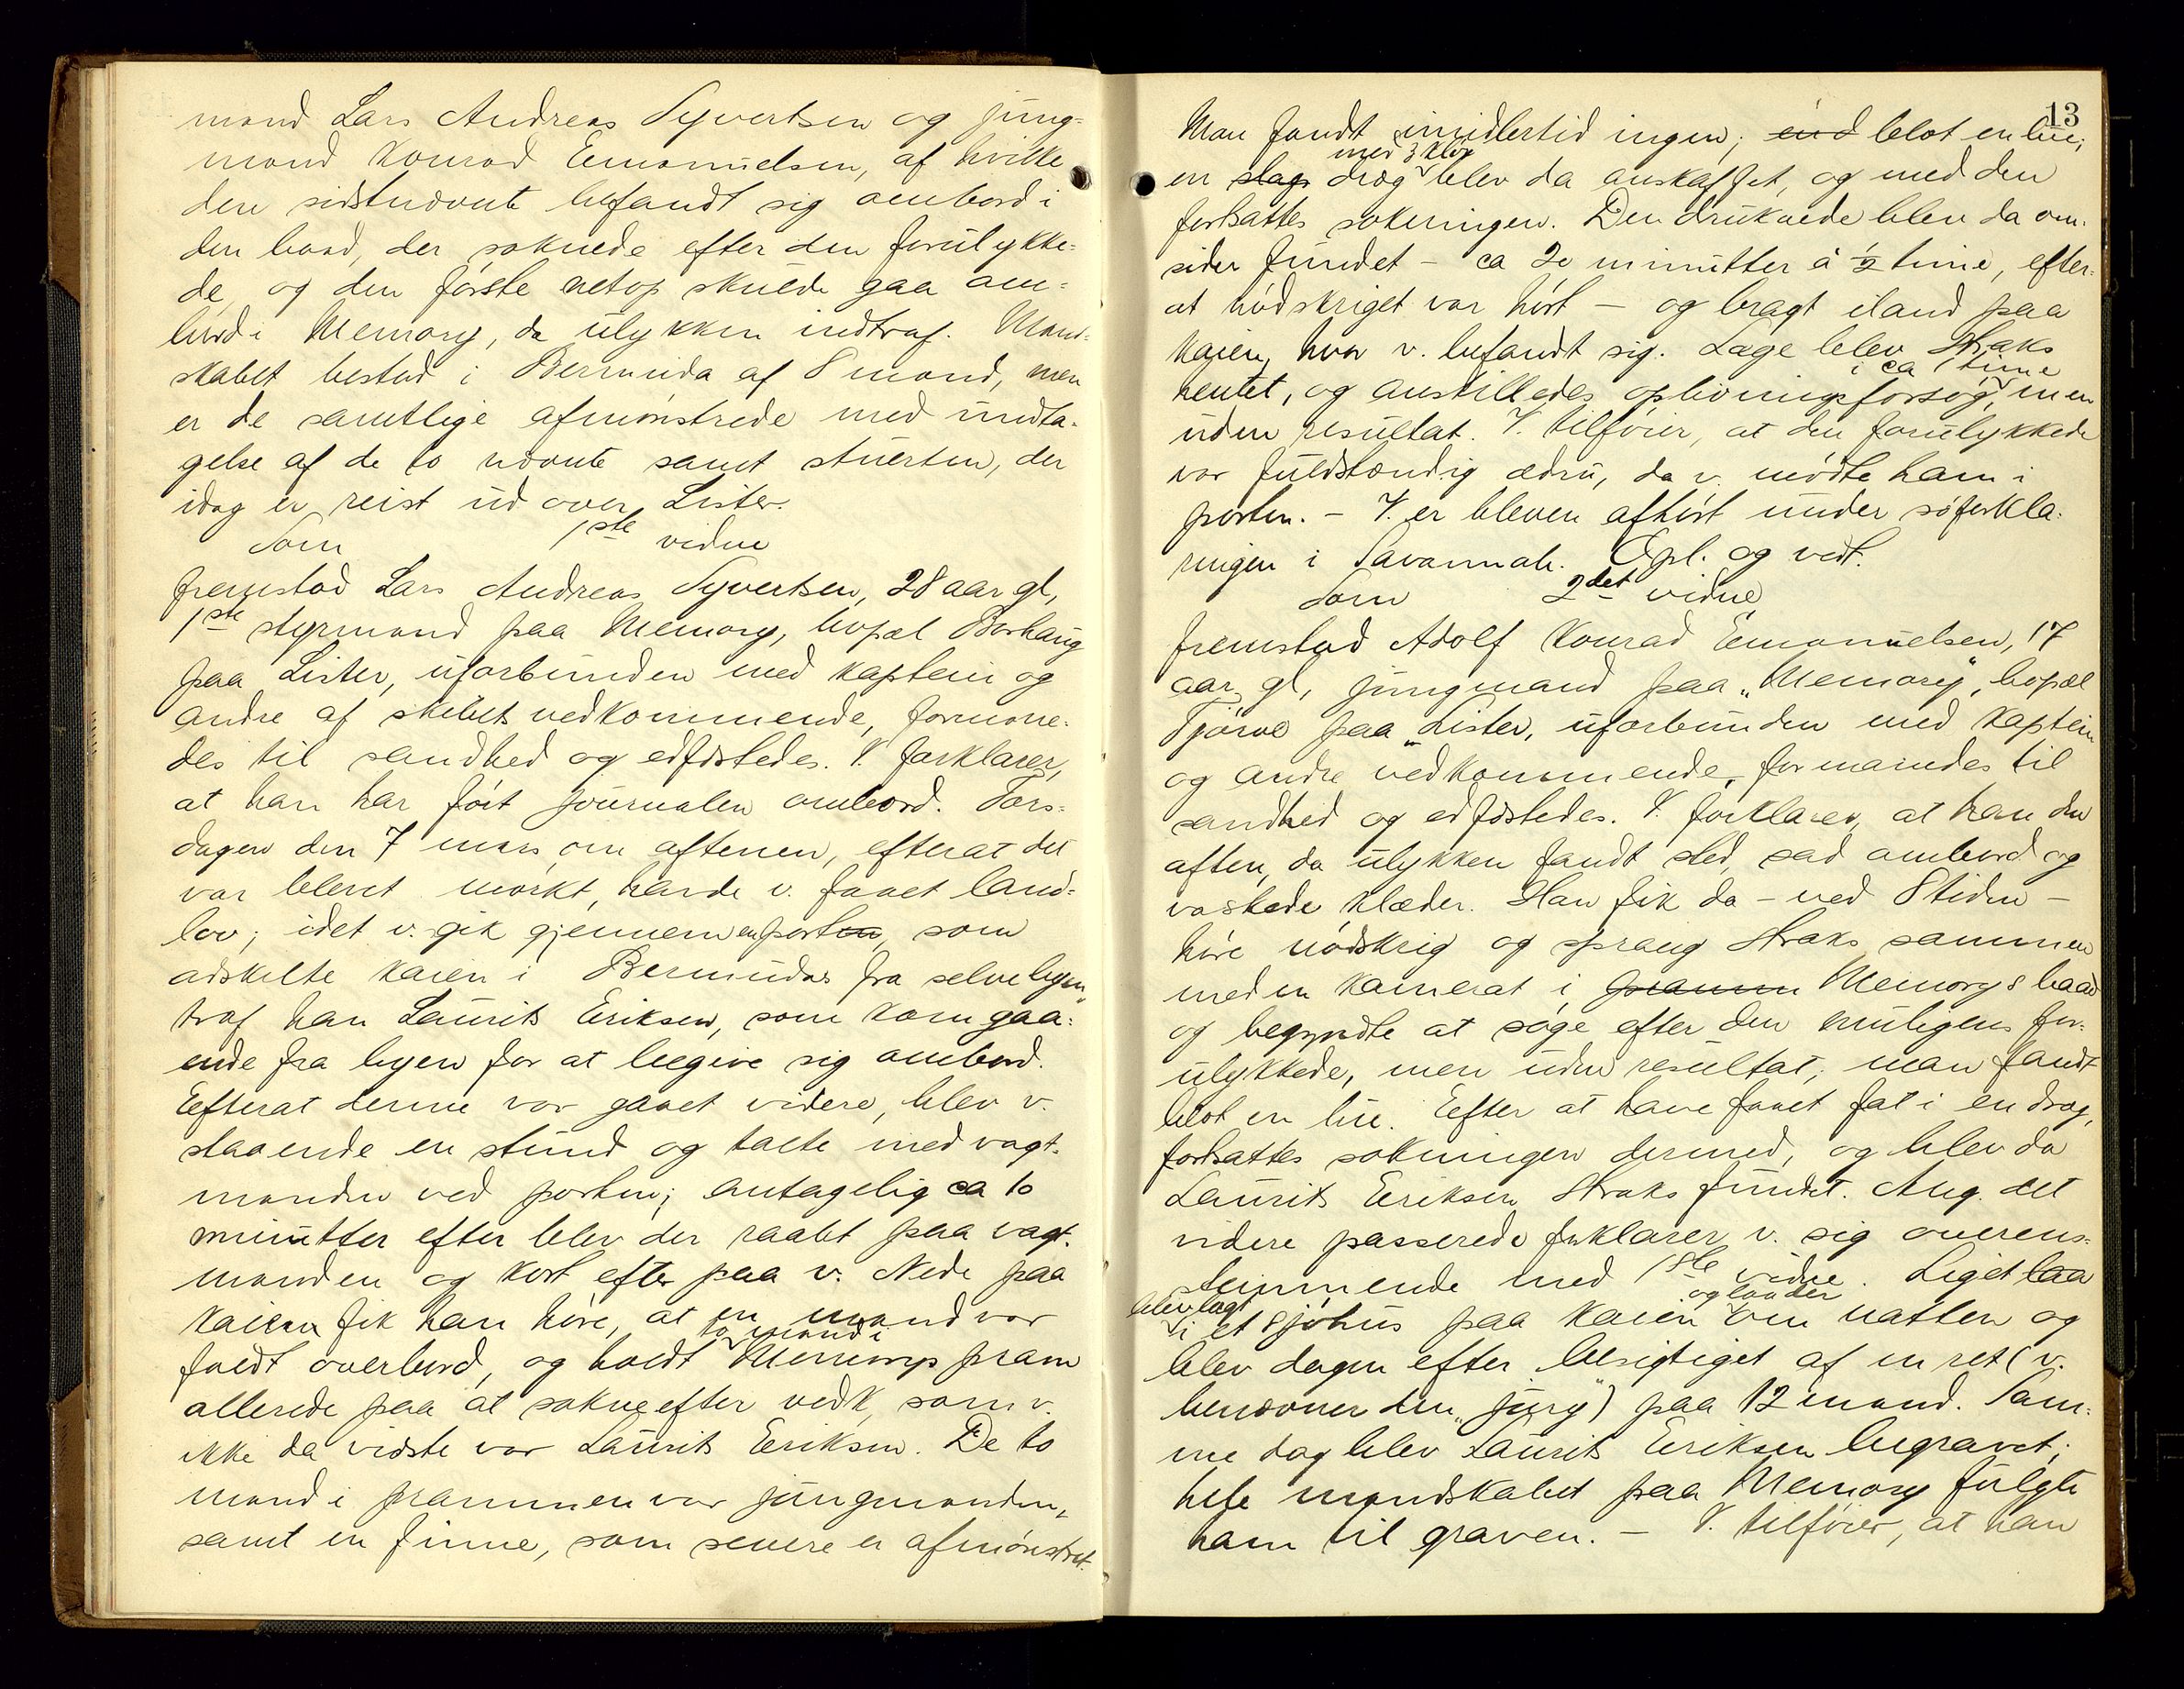 mand Lars Andreas Syvertsen og jung-
mand Konrad Emanuelsen, af hvilke
den sidstnævnte befandt sig ombord i
den baad, der soknede efter den forulykke-
de, og den første netop skulde gaa om-
bord i Memory, da ulykken indtraf. Mand-
skabet bestod i Bermuda af 8 mand, men
er de samtlige afmønstrede med undta-
gelse af de to nævnte samt stuerten, der
idag er reist ud over Lister.
Som 1ste vidne
fremstod Lars Andreas Syvertsen, 28 aar gl,
1ste styrmand paa Memory, bopæl Borhaug
paa Lister, uforbunden med kaptein og
andre af skibets vedkommende, formane-
des til sandhed og edfæstedes. V. forklarer,
at han har ført journalen ombord. Tors-
dagen den 7 mars om aftenen, efterat det
var blevet mørkt, havde v. faaet land-
lov; idet v. gik gjennem en porten, som
adskilte kaien i Bermudas fra selve byen,
traf han Laurits Eriksen, som kom gaa-
ende fra byen for at begive sig ombord.
Efterat denne var gaaet videre, blev v.
staaende en stund og talte med vagt-
manden ved porten; antagelig ca 10
minutter efter blev der raabt paa vagt-
manden og kort efter paa v. Nede paa
kaien fik han høre, at en mand var
faldt overbord, og holdt to mand i Memorys pram
allerede paa at sokne efter vedk, som v.
ikke da vidste var Laurits Eriksen. De to
mand i prammen var jungmanden,
samt en finne, som senere er afmønstret.
13
Man fandt imidlertid ingen; end blot en lue;
en slags dræg med 3 klør blev da anskaffet, og med den
fortsattes sokningen. Den druknede blev da om-
sider fundet - ca 20 minutter á ½ time, efter-
at nødskriget var hørt - og bragt iland paa
kaien, hvor v. befandt sig. Læge blev straks
hentet, og anstilledes oplivningsforsøg i ca 1 time, men
uden resultat. V. tilføier, at den forulykkede
var fuldstændig ædru, da v. mødte ham i
porten. - V. er bleven afhørt under søforkla-
ringen i Savannah. Opl. og vedt.
Som 2det vidne
fremstod Adolf Konrad Emanuelsen, 17
aar gl, jungmand paa "Memory", bopæl
Tjørve paa Lister, uforbunden med kaptein
og andre vedkommende, formanedes til
sandhed og edfæstedes. V. forklarer, at han den
aften, da ulykken fandt sted, sad ombord og
vaskede klæder. Han fik da - ved 8 tiden -
høre nødskrig og sprang straks sammen
med en kamerat i prammen Memorys baad
og begyndte at søge efter den muligens for-
ulykkede, men uden resultat; man fandt
blot en lue. Efter at have faaet fat i en dræg,
fortsattes sokningen dermed, og blev da
Laurits Eriksen straks fundet. Ang. det
videre passerede forklarer v. sig overens-
stemmende med 1ste vidne. Liget laa
blev lagt i et sjøhus paa kaien og laa der om natten og
blev dagen efter besigtiget af en ret (v.
benævner den "jury") paa 12 mand. Sam-
me dag blev Laurits Eriksen begravet;
hele mandskabet paa Memory fulgte
ham til graven. - V. tilføier, at han